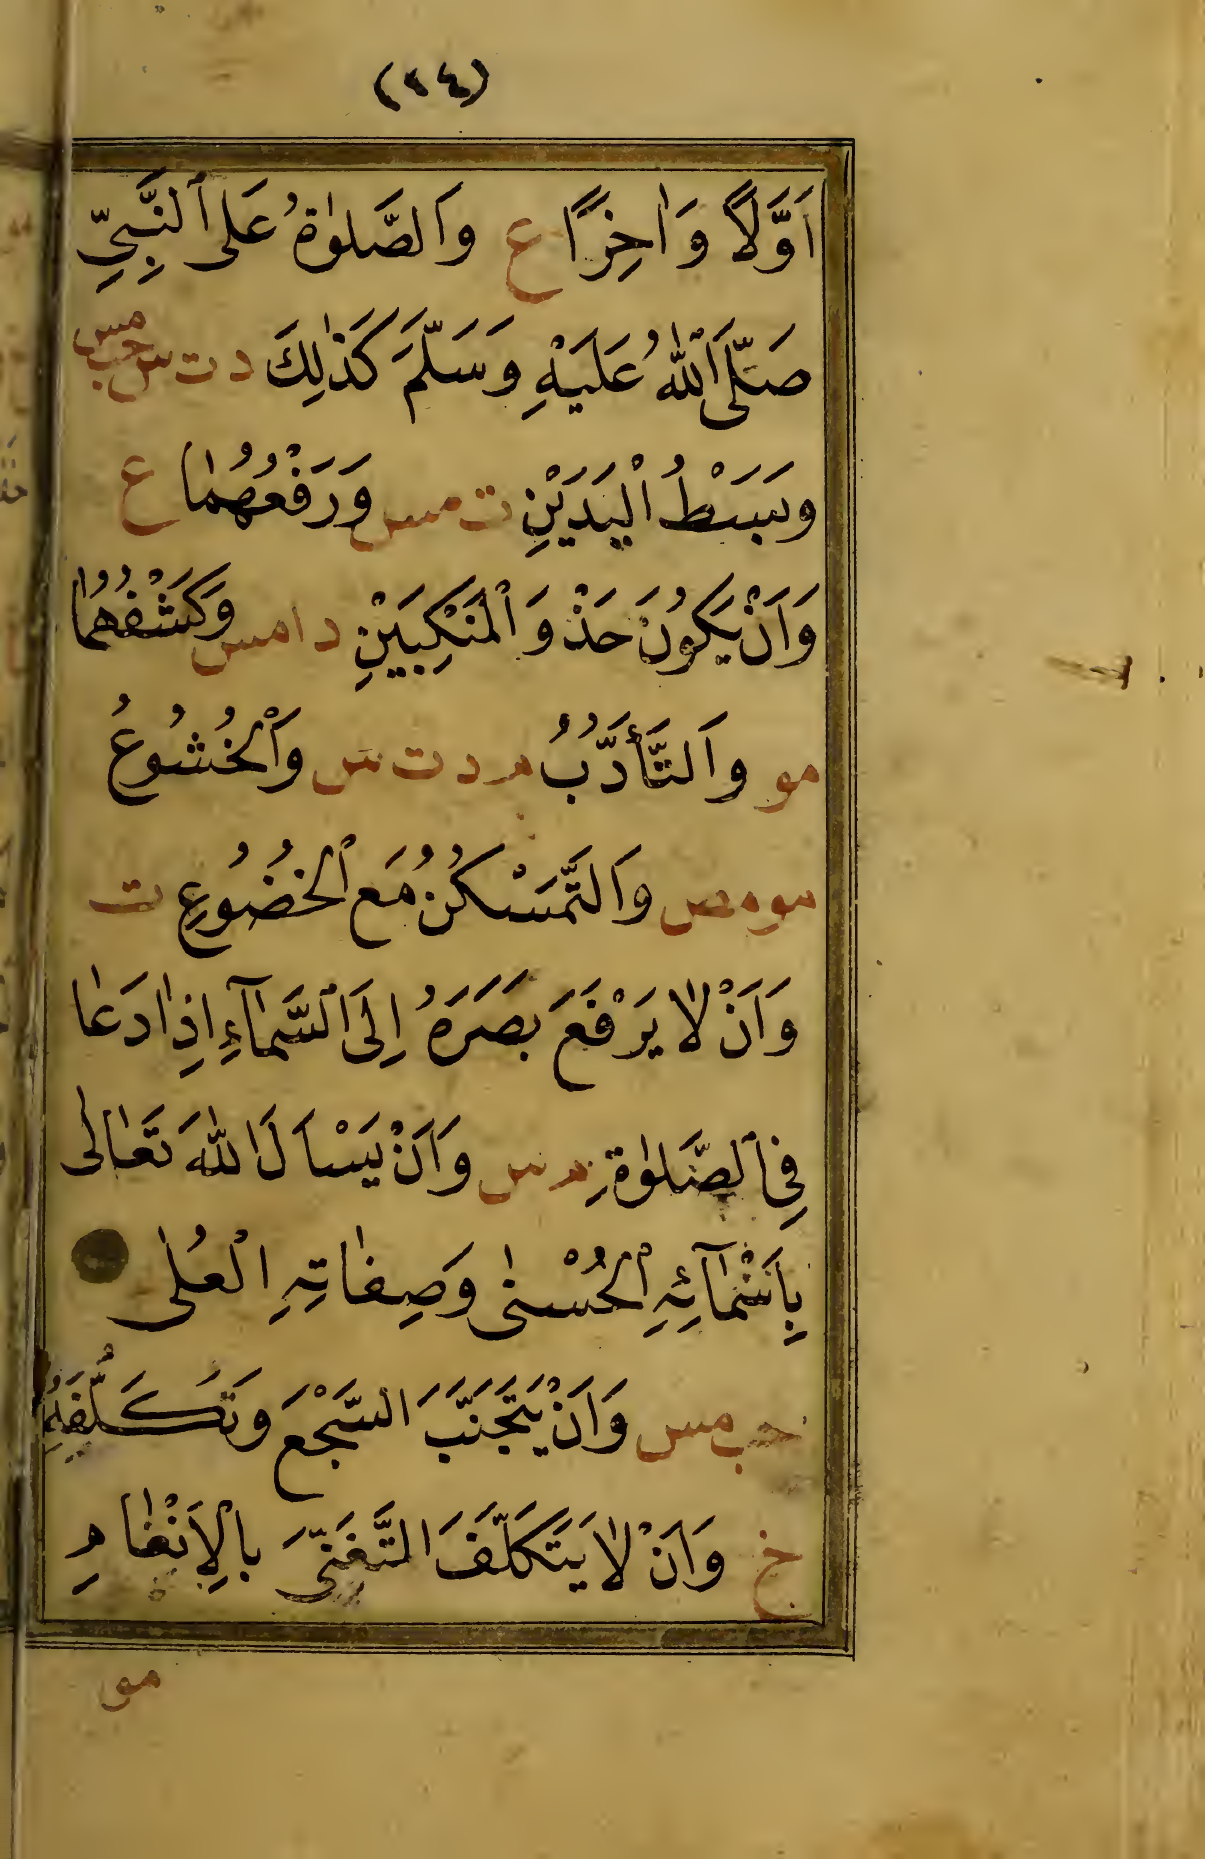 (٢٤)
اَوَّلًا وَاٰخِرًا ع وَالصَّلٰوةُ عَلَى النَّبِيِّ
صَلَّى اللّٰهُ عَلَيْهِ وَسَلَّمَ كَذٰلِكَ د ت س حب مس
وَبَسْطُ الْيَدَيْنِ ت مس وَرَفْعُهُمَا ع
وَاَنْ يَكُونَ حَذْوَ الْمَنْكِبَيْنِ د ا مس وَكَشْفُهُمَا
مو وَالتَّأَدُّبُ م د ت س وَالْخُشُوعُ
مو مص وَالتَّمَسْكُنُ مَعَ الْخُضُوعِ ت
وَاَنْ لَا يَرْفَعَ بَصَرَهُ اِلَى السَّمَآءِ اِذَا دَعَا
فِي الصَّلٰوةِ م س وَاَنْ يَسْاَلَ اللّٰهَ تَعَالٰى
بِاَسْمَآئِهِ الْحُسْنٰى وَصِفَاتِهِ الْعُلٰى
حب مس وَاَنْ يَتَجَنَّبَ السَّجْعَ وَتَكَلُّفَهُ
خ وَاَنْ لَا يَتَكَلَّفَ التَّغَنِّيَ بِالْاَنْغَامِ
مو